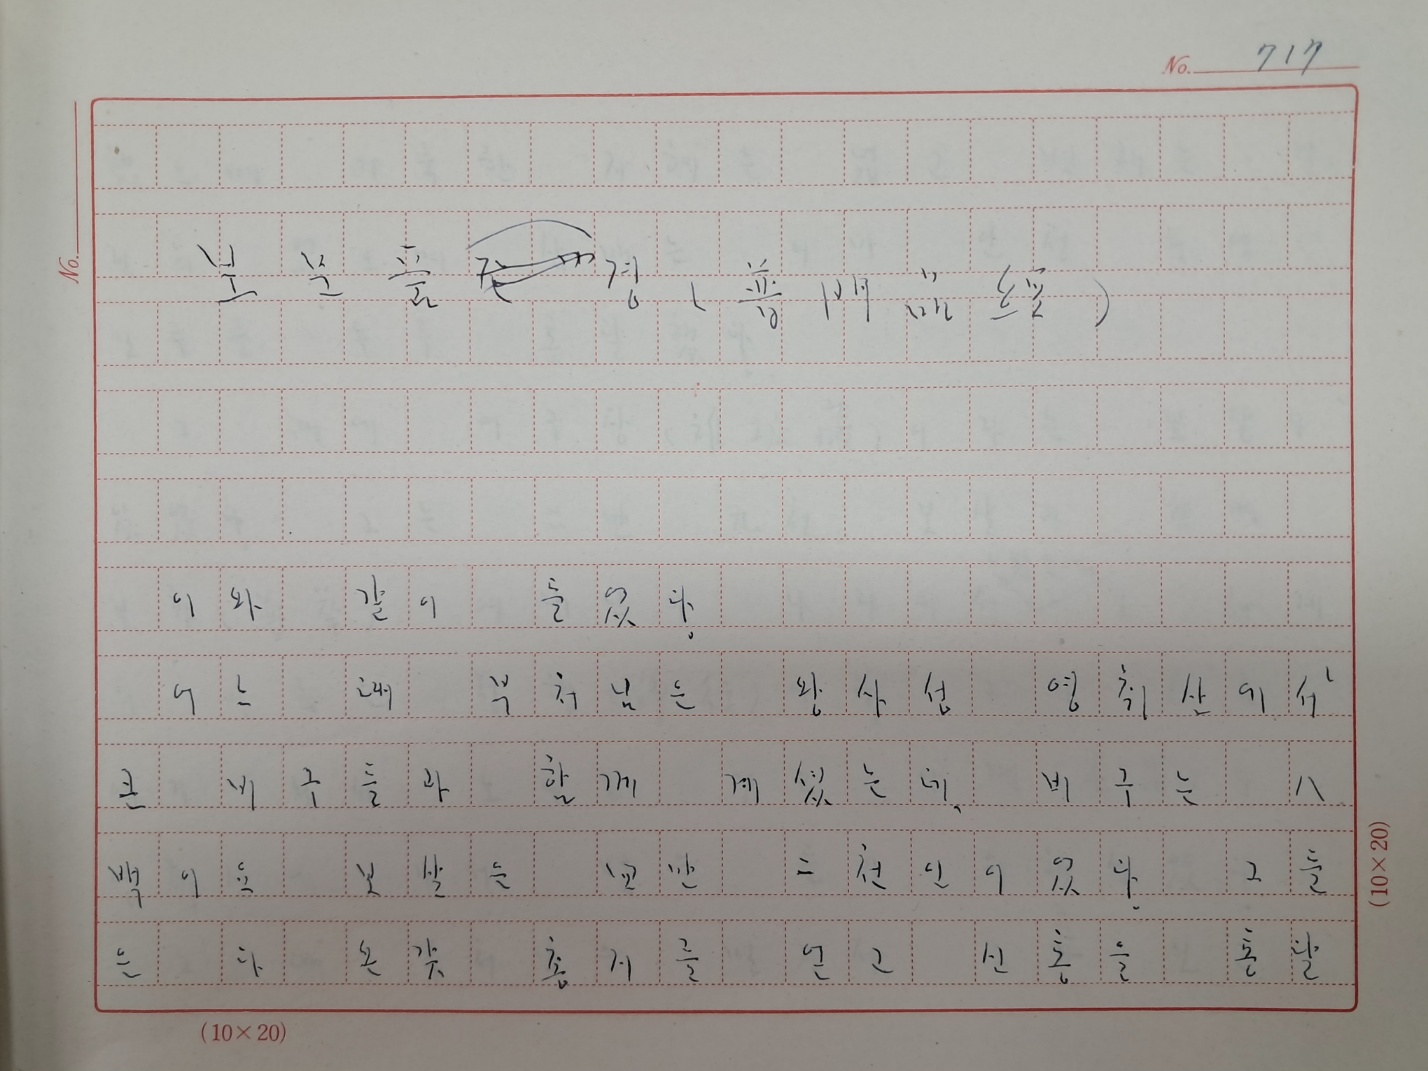 No. 717
No.
경
이와 같이 들었다.
어느 때 부처님은 왕사성 영취산에서
큰 비구들과 함께 계셨는데, 비구는 八
백이요 보살은 二천인이었다. 그들
은 다 온갖 총지를 얻고 신통을 통달
(10×20)
(10×20)